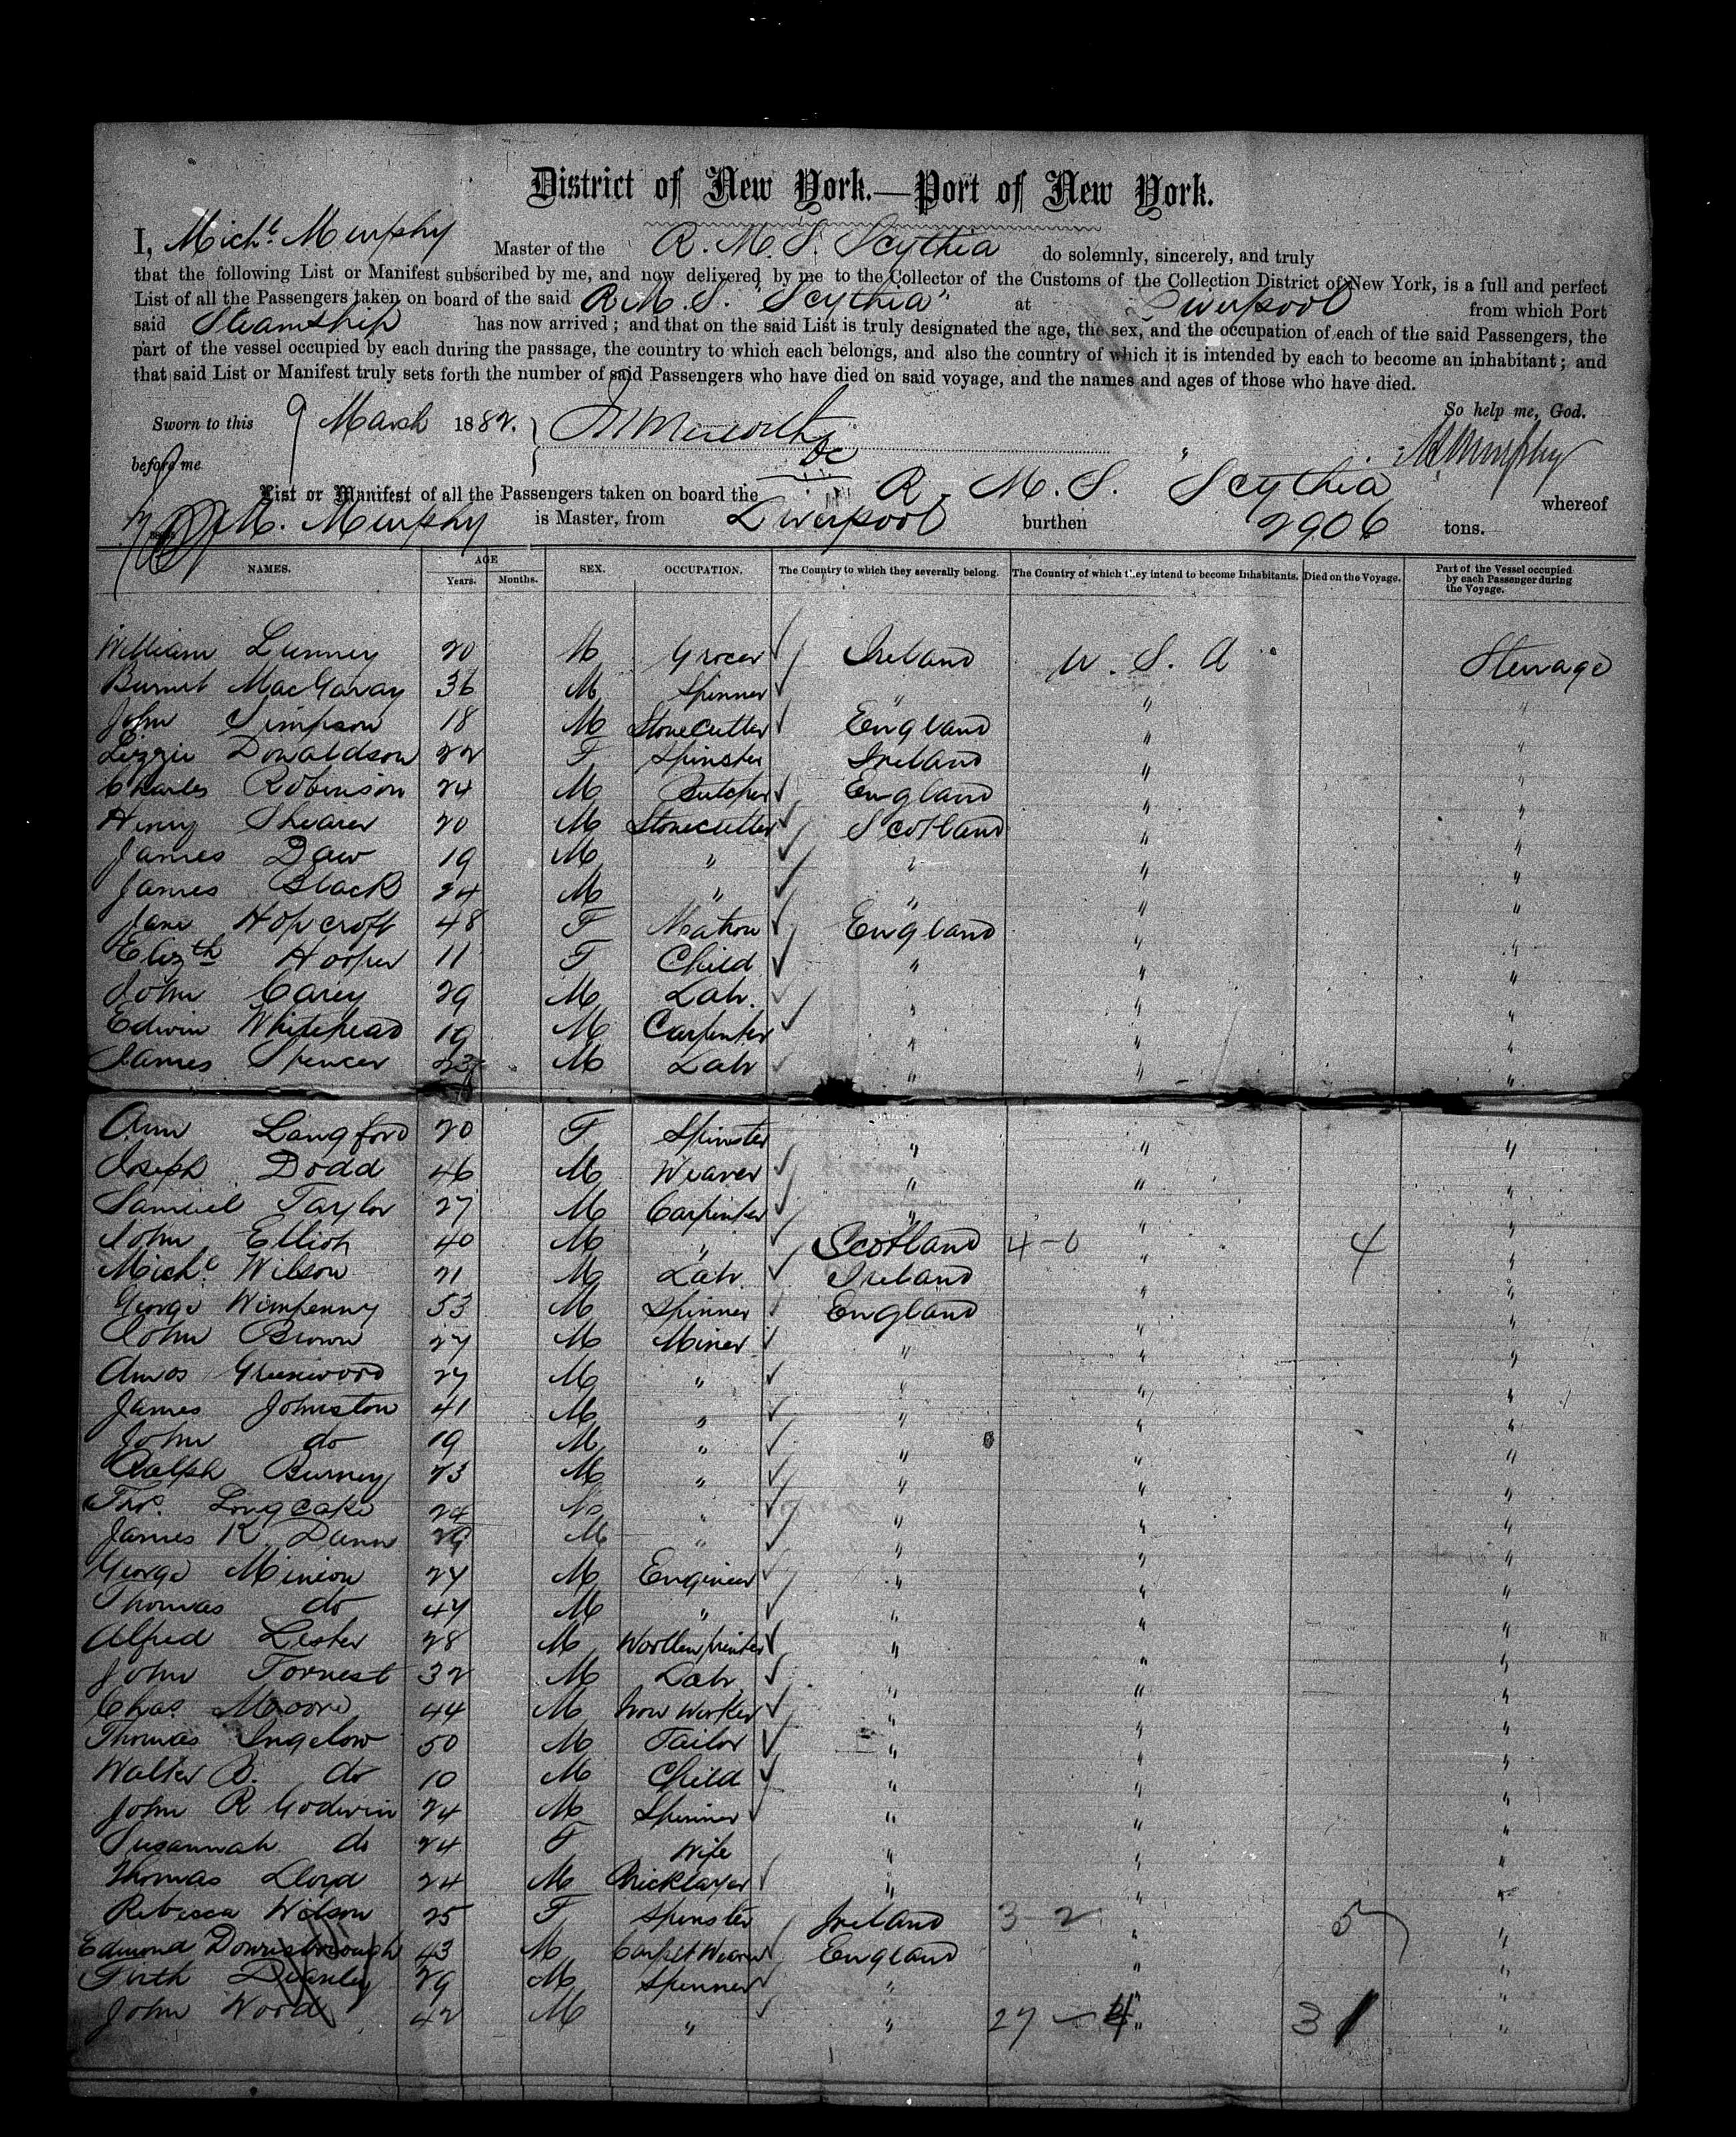 District of New York.—Port of New York.
I, Mich.l Murphy Master of the R. M. S. Scythia do solemnly, sincerely, and truly
that the following List or Manifest subscribed by me, and now delivered by me to the Collector of the Customs of the Collection District of New York, is a full and perfect
List of all the Passengers taken on board of the said R. M. S. "Scythia" at Liverpool from which Port
said Steamship has now arrived; and that on the said List is truly designated the age, the sex, and the occupation of each of the said Passengers, the
part of the vessel occupied by each during the passage, the country to which each belongs, and also the country of which it is intended by each to become an inhabitant; and
that said List or Manifest truly sets forth the number of said Passengers who have died on said voyage, and the names and ages of those who have died.
So help me, God.
Sworn to this 9 March 1882.
before me M Murphy
List or Manifest of all the Passengers taken on board the R. M. S. Scythia whereof
M. Murphy is Master, from Liverpool burthen 2906 tons.
NAMES. AGE Years. Months. SEX. OCCUPATION. The Country to which they severally belong. The Country of which they intend to become Inhabitants. Died on the Voyage. Part of the Vessel occupied by each Passenger during the Voyage.
William Lunney 20 M Grocer Ireland U. S. A Steerage
Burnet MacGaray 36 M Spinner " " "
John Simpson 18 M Stonecutter England " "
Lizzie Donaldson 22 F Spinster Ireland " "
Charles Robinson 24 M Butcher England " "
Henry Shearer 20 M Stonecutter Scotland " "
James Daw 19 M " " " "
James Black 24 M " " " "
Jane Hopcroft 48 F Matron England " "
Elizth Hooper 11 F Child " " "
John Carey 29 M Labr. " " "
Edwin Whitehead 19 M Carpenter " " "
James Spencer 23 M Labr " " "
Ann Langford 20 F Spinster " " "
Joseph Dodd 46 M Weaver " " "
Samuel Taylor 27 M Carpenter " " "
John Elliott 40 M " Scotland 4-0 " 4 "
Mich.l Wilson 21 M Labr. Ireland " "
George Wimpenny 53 M Spinner England " "
John Brown 27 M Miner " " "
Amos Greenwood 27 M " " " "
James Johnston 41 M " " " "
John do 19 M " " " "
Ralph Burney 23 M " " " "
Thos. Longcake 24 M " " " "
James K. Dunn 29 M " " " "
George Minion 24 M Engineer " " "
Thomas do 47 M " " " "
Alfred Lester 28 M Woollen printer " " "
John Forrest 32 M Labr " " "
Chas. Moore 44 M Iron Worker " " "
Thomas Ingelow 50 M Tailor " " "
Walter B. do 10 M Child " " "
John R Godwin 24 M Spinner " " "
Susannah do 24 F Wife " " "
Thomas Lloyd 24 M Bricklayer " " "
Rebecca Wilson 25 F Spinster Ireland 3-2 " 5 "
Edmond Downsborough 43 M Carpet Weaver England " "
Firth Dianley 29 M Spinner " " "
John Wood 42 M " " 27-4 " 31 "